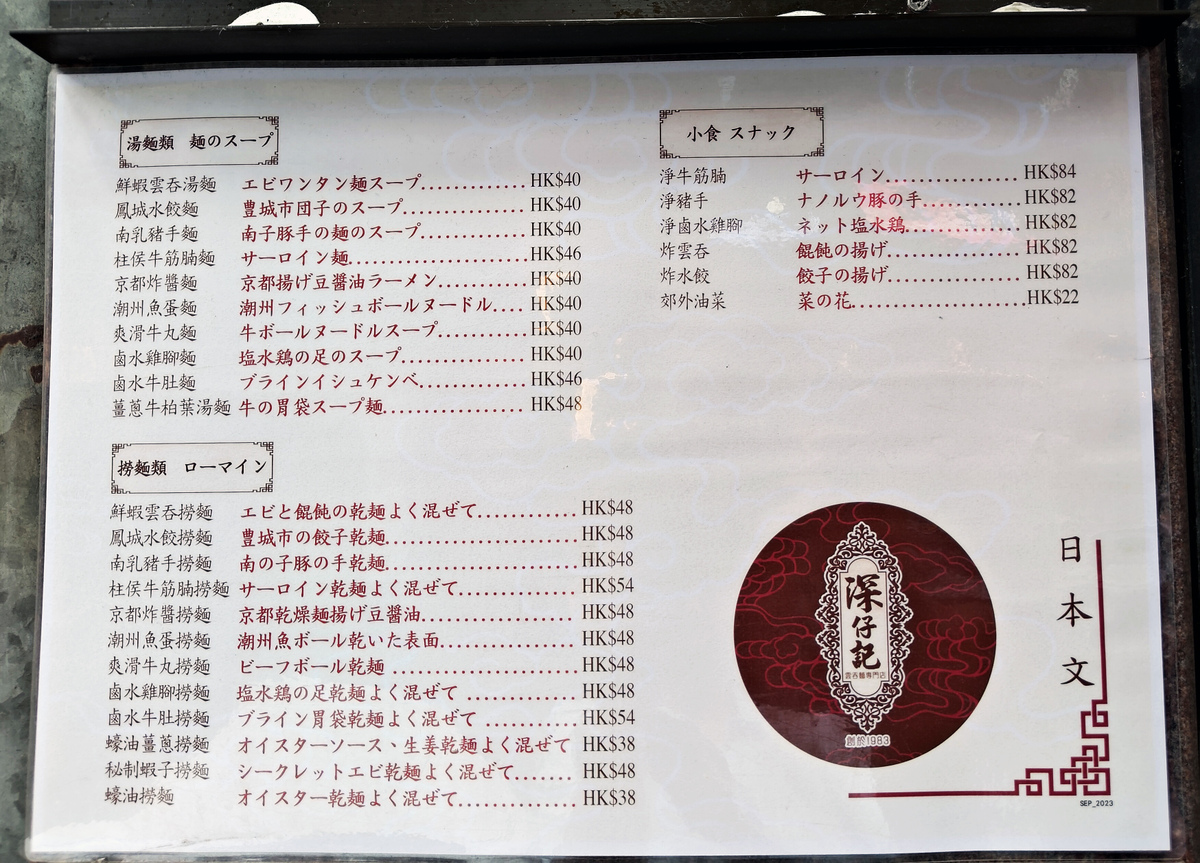 湯麵類 麺のスープ
鮮蝦雲吞湯麵 エビワンタン麺スープ............ HK$40
鳳城水餃麵 豊城市団子のスープ............... HK$40
南乳豬手麵 南子豚手の麺のスープ............ HK$40
柱侯牛筋腩麵 サーロイン麺..................... HK$46
京都炸醬麵 京都揚げ豆醤油ラーメン.......... HK$40
潮州魚蛋麵 潮州フィッシュボールヌードル.... HK$40
爽滑牛丸麵 牛ボールヌードルスープ.......... HK$40
鹵水雞腳麵 塩水鶏の足のスープ............... HK$40
鹵水牛肚麵 ブラインイシュケンベ............. HK$46
薑蔥牛柏葉湯麵 牛の胃袋スープ麺................. HK$48
撈麵類 ローマイン
鮮蝦雲吞撈麵 エビと餛飩の乾麺よく混ぜて............ HK$48
鳳城水餃撈麵 豊城市の餃子乾麺....................... HK$48
南乳豬手撈麵 南の子豚の手乾麺....................... HK$48
柱侯牛筋腩撈麵 サーロイン乾麺よく混ぜて.............. HK$54
京都炸醬撈麵 京都乾燥麺揚げ豆醤油.................. HK$48
潮州魚蛋撈麵 潮州魚ボール乾いた表面................ HK$48
爽滑牛丸撈麵 ビーフボール乾麺 ...................... HK$48
鹵水雞腳撈麵 塩水鶏の足乾麺よく混ぜて ............. HK$48
鹵水牛肚撈麵 ブライン胃袋乾麺よく混ぜて ........... HK$54
蠔油薑蔥撈麵 オイスターソース、生姜乾麺よく混ぜて HK$38
秘制蝦子撈麵 シークレットエビ乾麺よく混ぜて....... HK$48
蠔油撈麵 オイスター乾麺よく混ぜて.............. HK$38
小食 スナック
淨牛筋腩 サーロイン................. HK$84
淨豬手 ナノルウ豚の手............ HK$82
淨鹵水雞腳 ネット塩水鶏.............. HK$82
炸雲吞 餛飩の揚げ................ HK$82
炸水餃 餃子の揚げ................ HK$82
郊外油菜 菜の花......................HK$22
深仔記
雲吞麵專門店
創於1983
日本文
SEP_2023